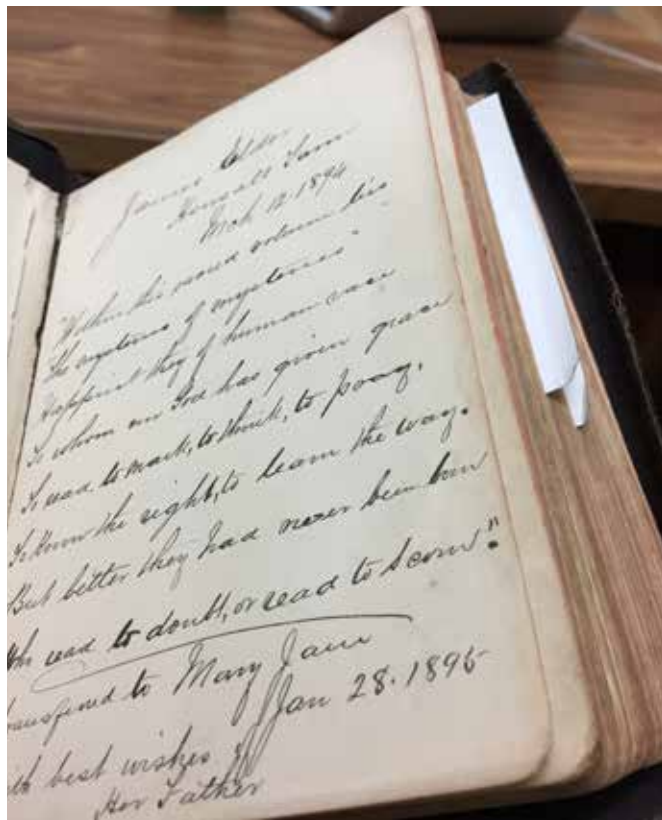 James Elder
Mch 12. 1894
"Within this sacred volume lies
The mysteries of mysteries
Happiest they of human race
To whom our God has given grace
To read, to mark, to think, to pray,
To know the right, to learn the way.
But better they had never been born
Who read to doubt, or read to scorn."
ransferred to Mary Jane
Jan 28. 1895
ith best wishes of
Her Father